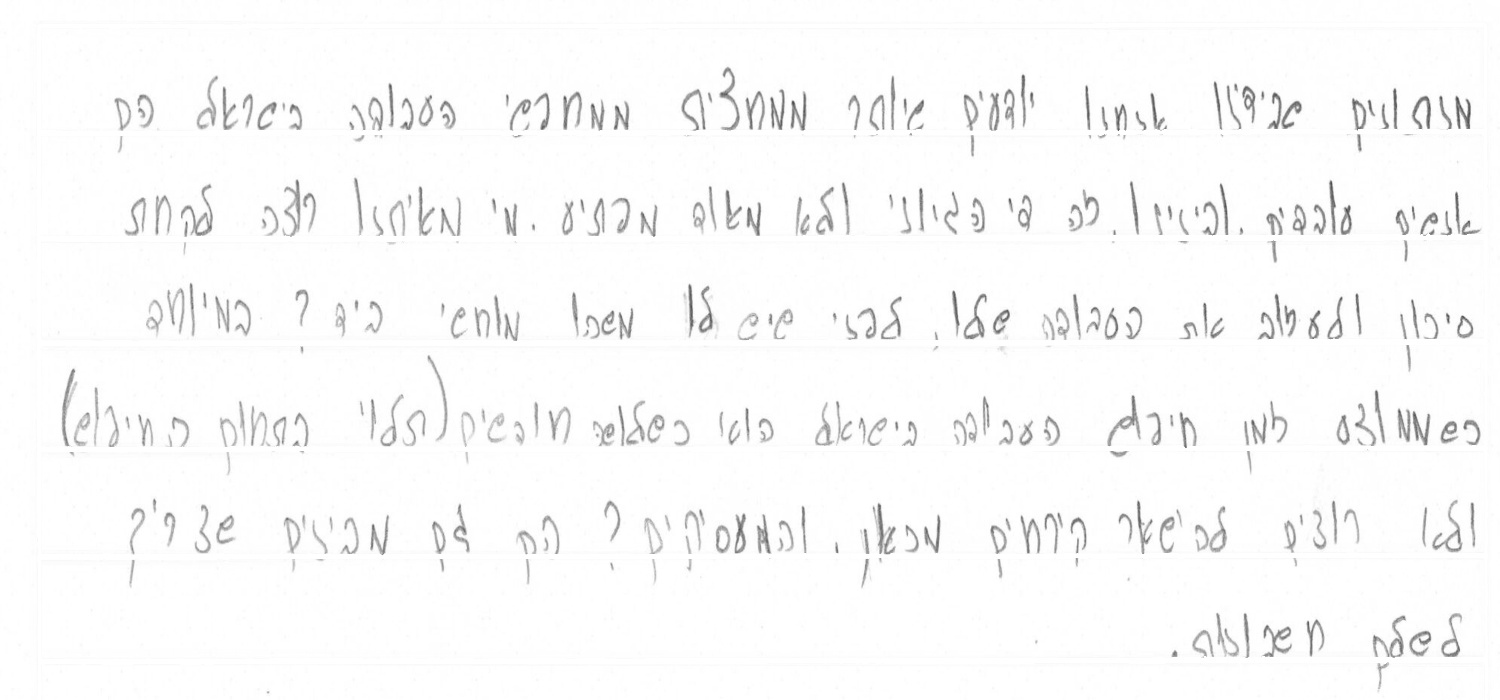 מנתונים שבידינו אנחנו יודעים שיותר ממחצית ממחפשי העבודה בישראל הם
אנשים עובדים .ובינינו, זה די הגיוני ולא מאוד מפתיע .מי מאיתנו רוצה לקחת
סיכון ולעזוב את העבודה שלו, לפני שיש לו משהו מוחשי ביד ? במיוחד
כשממוצע זמן חיפוש העבודה בישראל הוא כשלושה חודשים (תלוי בתחום החיפוש)
ולא רוצים להישאר קירחים מכאן . והמעסיקים ? הם גם מבינים שצריך
לשלם חשבונות.